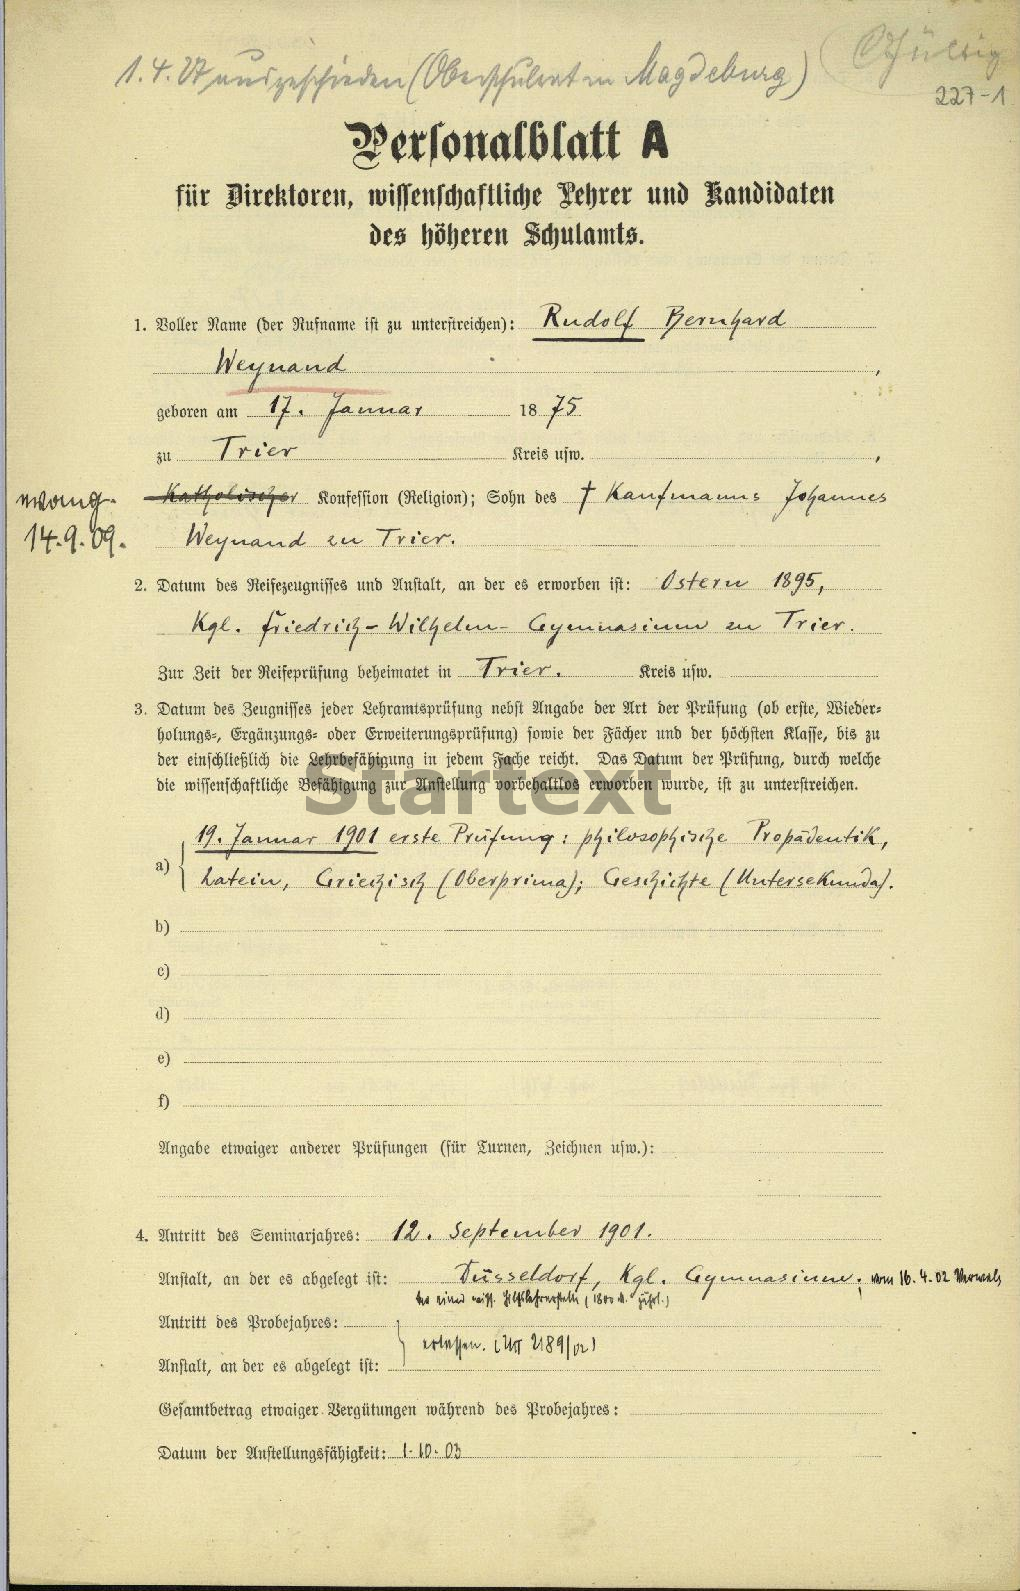 1.4.27 ausgeschieden (Oberschulrat in Magdeburg)
227-1
Personalblatt A
für Direktoren, wissenschaftliche Lehrer und Kandidaten
des höheren Schulamts.
1. Voller Name (der Rufname ist zu unterstreichen): Rudolf Bernhard
Weynand,
geboren am 17. Januar 1875
zu Trier Kreis usw. ,
evang. Katholischer Konfession (Religion); Sohn des † Kaufmanns Johannes
14.9.09. Weynand zu Trier.
2. Datum des Reifezeugnisses und Anstalt, an der es erworben ist: Ostern 1895,
Kgl. Friedrich-Wilhelm-Gymnasium zu Trier.
Zur Zeit der Reifeprüfung beheimatet in Trier. Kreis usw.
3. Datum des Zeugnisses jeder Lehramtsprüfung nebst Angabe der Art der Prüfung (ob erste, Wieder-
holungs-, Ergänzungs- oder Erweiterungsprüfung) sowie der Fächer und der höchsten Klasse, bis zu
der einschließlich die Lehrbefähigung in jedem Fache reicht. Das Datum der Prüfung, durch welche
die wissenschaftliche Befähigung zur Anstellung vorbehaltlos erworben wurde, ist zu unterstreichen.
Startext
a) 19. Januar 1901 erste Prüfung: philosophische Propädeutik,
Latein, Griechisch (Oberprima); Geschichte (Untersekunda).
b)
c)
d)
e)
f)
Angabe etwaiger anderer Prüfungen (für Turnen, Zeichnen usw.):
4. Antritt des Seminarjahres: 12. September 1901.
Anstalt, an der es abgelegt ist: Düsseldorf, Kgl. Gymnasium; vom 16.4.02 Verwal-
ter einer wiss. Hilfslehrerstelle (1800 M. jährl.)
Antritt des Probejahres:
erlassen.
Anstalt, an der es abgelegt ist:
Gesamtbetrag etwaiger Vergütungen während des Probejahres:
Datum der Anstellungsfähigkeit: 1.10.03